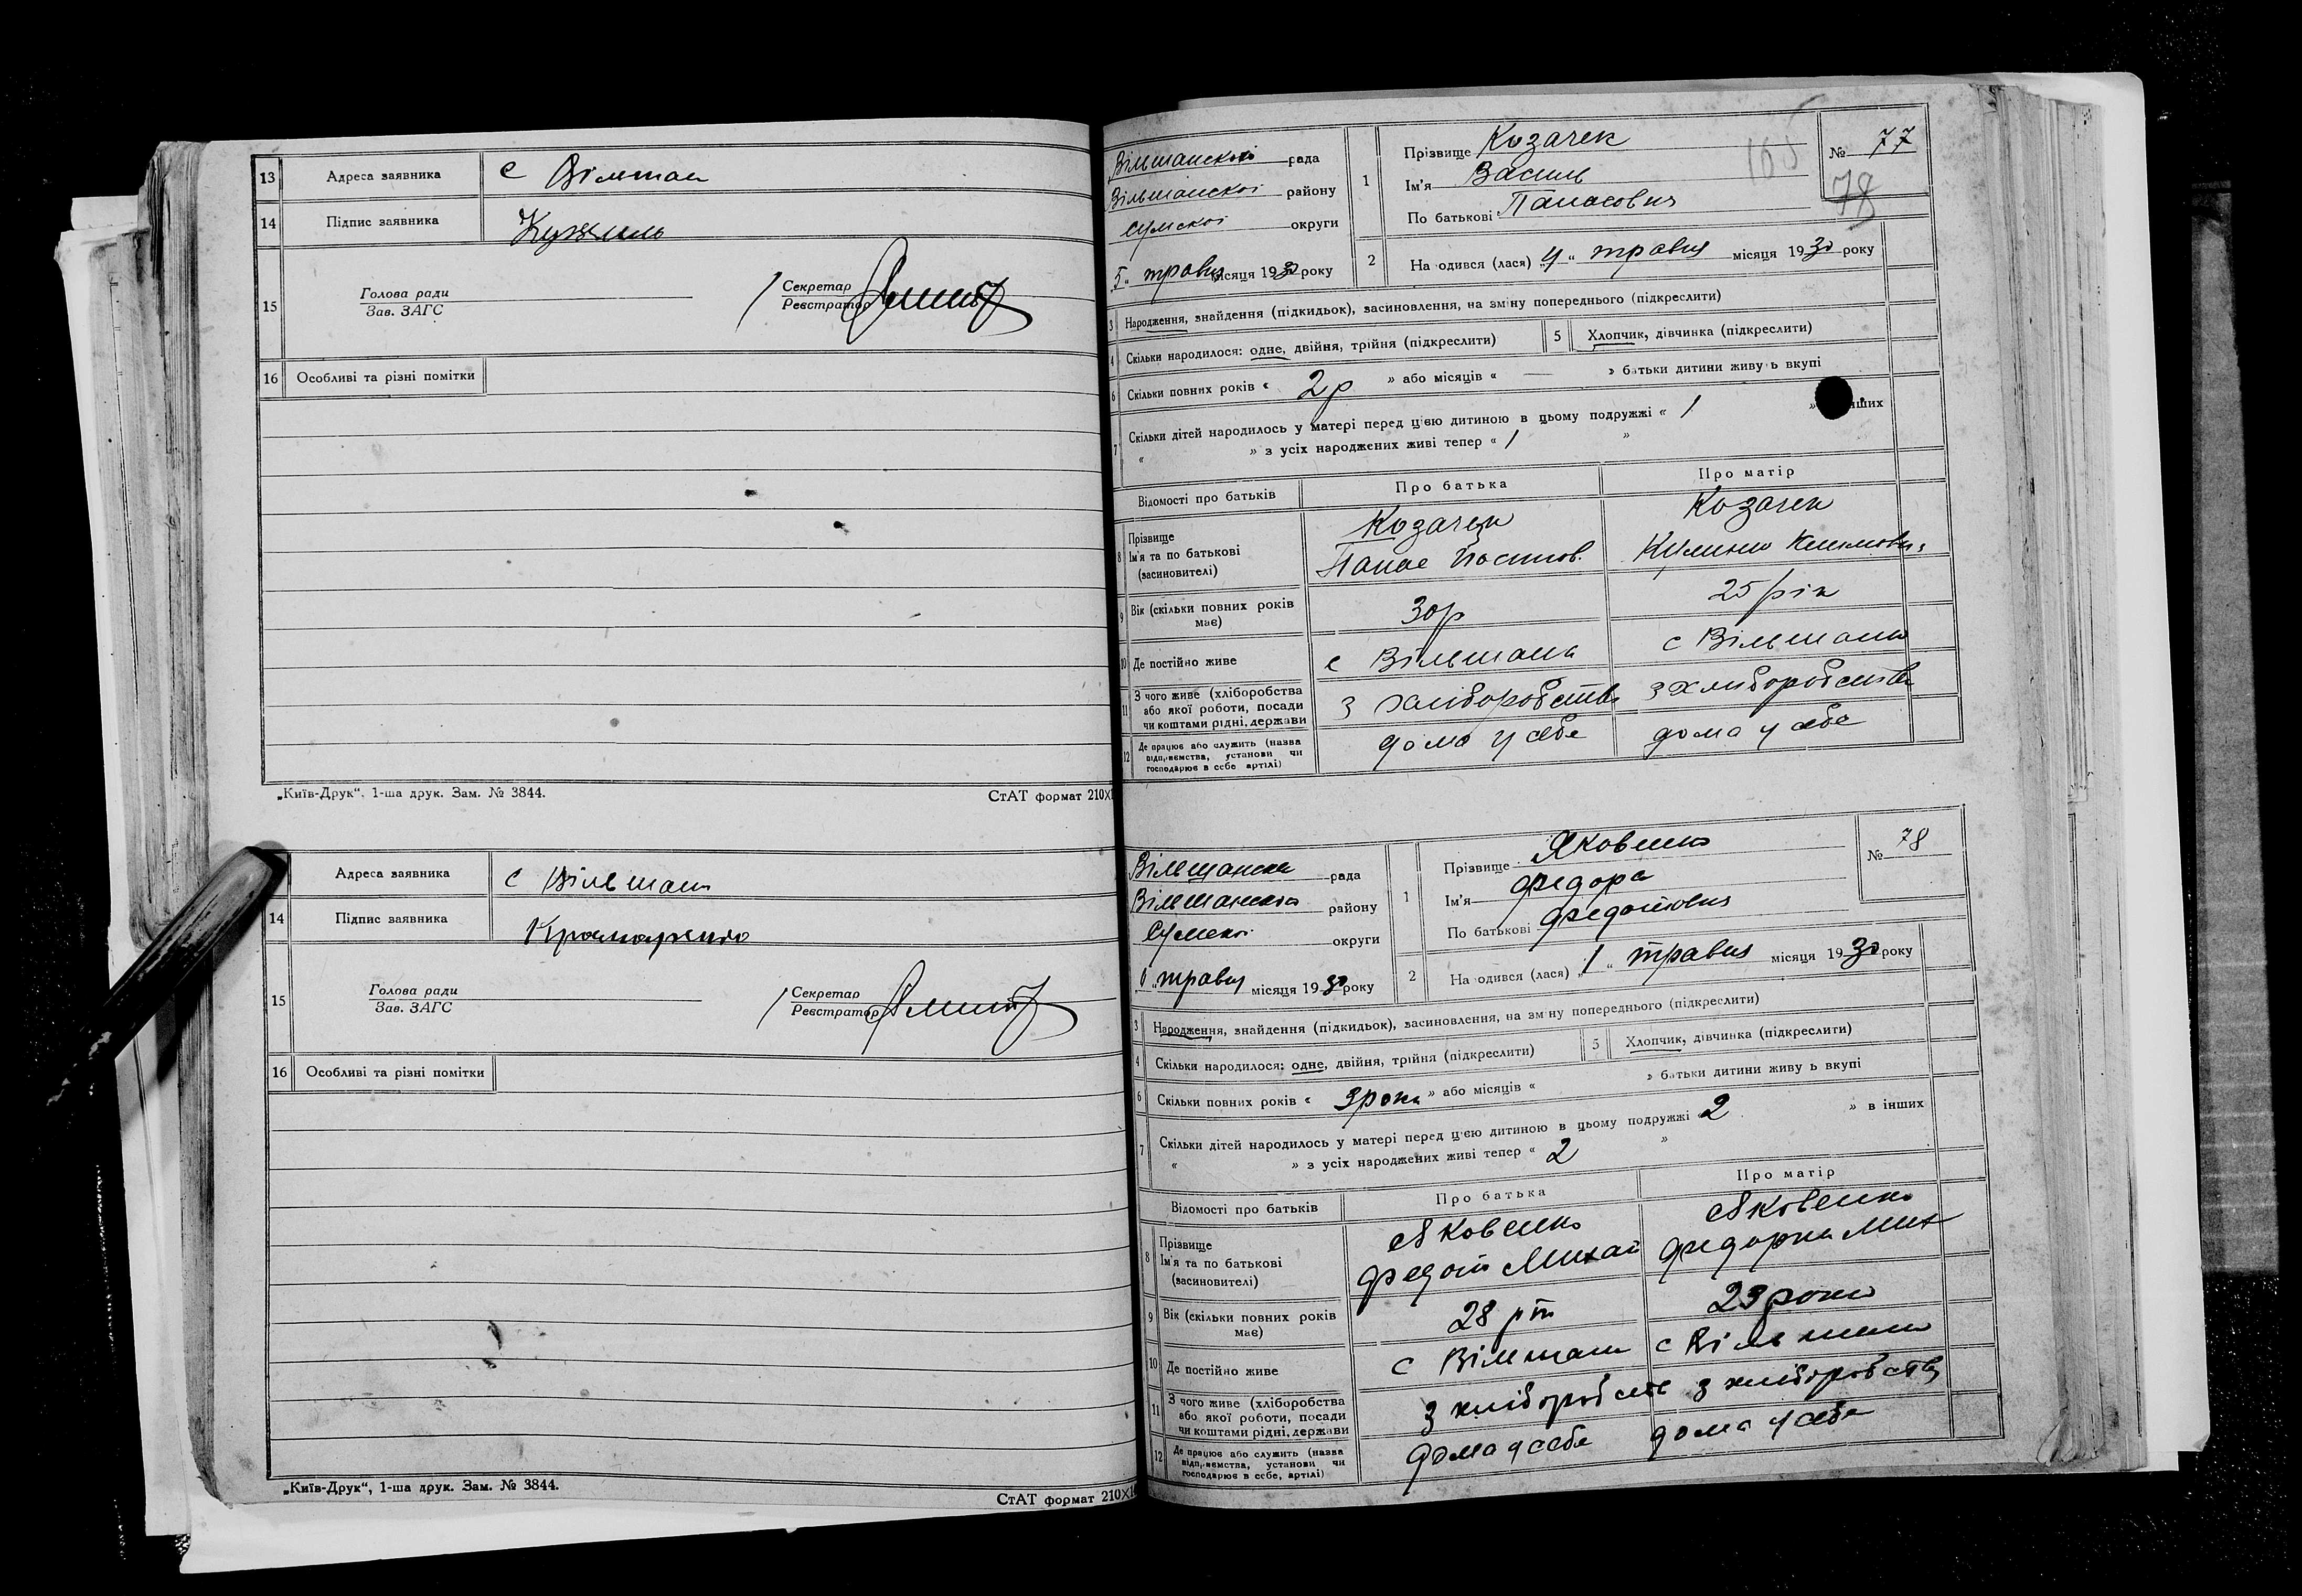 13 Адреса заявника с Вільшан
14 Підпис заявника Кужель
15 Голова ради
Зав. ЗАГС
Секретар
Реєстратор
16 Особливі та різні помітки
„Київ-Друк“. 1-ша друк. Зам. № 3844.
СтАТ формат 210×1
Адреса заявника с Вільшан
14 Підпис заявника Крамаренко
15 Голова ради
Зав. ЗАГС
Секретар
Реєстратор
16 Особливі та різні помітки
„Київ-Друк“, 1-ша друк. Зам. № 3844.
СтАТ формат 210×1
Вільшанської рада
Вільшанскої району
Сумскої округи
5„ травня місяця 1930 року
1 Прізвище Козачек
Ім'я Василь
По батькові Панасович
165
№ 77
78
2 На одився (лася) „4“ травня місяця 1930 року
3 Народження, знайдення (підкидьок), засиновлення, на зміну попереднього (підкреслити)
4 Скільки народилося: одне, двійня, трійня (підкреслити) 5 Хлопчик, дівчинка (підкреслити)
6 Скільки повних років « 2 р » або місяців « — » батьки дитини живу ь вкупі
7 Скільки дітей народилось у матері перед цією дитиною в цьому подружжі « 1 » нших
« » з усіх народжених живі тепер « 1 »
Відомості про батьків Про батька Про матір
8 Прізвище Козачек Козачек
Ім'я та по батькові Панас
(засиновителі)
9 Вік (скільки повних років 30 р 25 рік
має)
10 Де постійно живе с Вільшана с Вільшана
11 З чого живе (хліборобства з хліборобства з хліборобства
або якої роботи, посади
чи коштами рідні, держави
12 Де працює або служить (назва дома у себе дома у себе
підприємства, установи чи
господарює в себе артілі)
Вільшанська рада
Вільшанська району
Сумскої округи
„травня місяця 1930 року
1 Прізвище Яковенко
Ім'я Федора
По батькові Федотович
№ 78
2 На одився (лася) „1“ травня місяця 1930 року
3 Народження, знайдення (підкидьок), засиновлення, на зм ну попереднього (підкреслити)
4 Скільки народилося: одне, двійня, трійня (підкреслити) 5 Хлопчик, дівчинка (підкреслити)
6 Скільки повних років « 3 роки » або місяців « » батьки дитини живу ь вкупі
7 Скільки дітей народилось у матері перед цією дитиною в цьому подружжі 2 » в інших
« » з усіх народжених живі тепер « 2 »
Відомості про батьків Про батька Про матір
8 Прізвище Яковенко Яковенко
Ім'я та по батькові Федот Михай Федорка Мих
(засиновителі)
9 Вік (скільки повних років 28 літ 23 роки
має)
10 Де постійно живе с Вільшан с Вільшани
11 З чого живе (хліборобства з хліборобств з хліборобств
або якої роботи, посади
чи коштами рідні, держави
12 Де працює або служить (назва дома у себе дома у себе
підприємства, установи чи
господарює в себе, артілі)